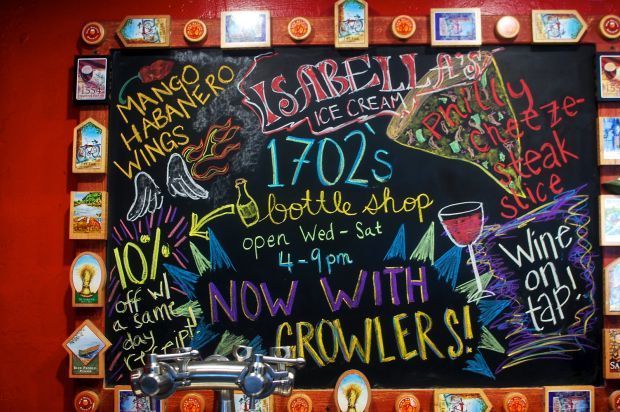 MANGO
HABANERO
WINGS
ISABELLA'S
ICE CREAM
Philly
cheeze-
steak
slice
1702's
bottle shop
open Wed-Sat
4-9pm
10%
off w/
a same
day
NOW WITH
GROWLERS!
Wine
on
tap!